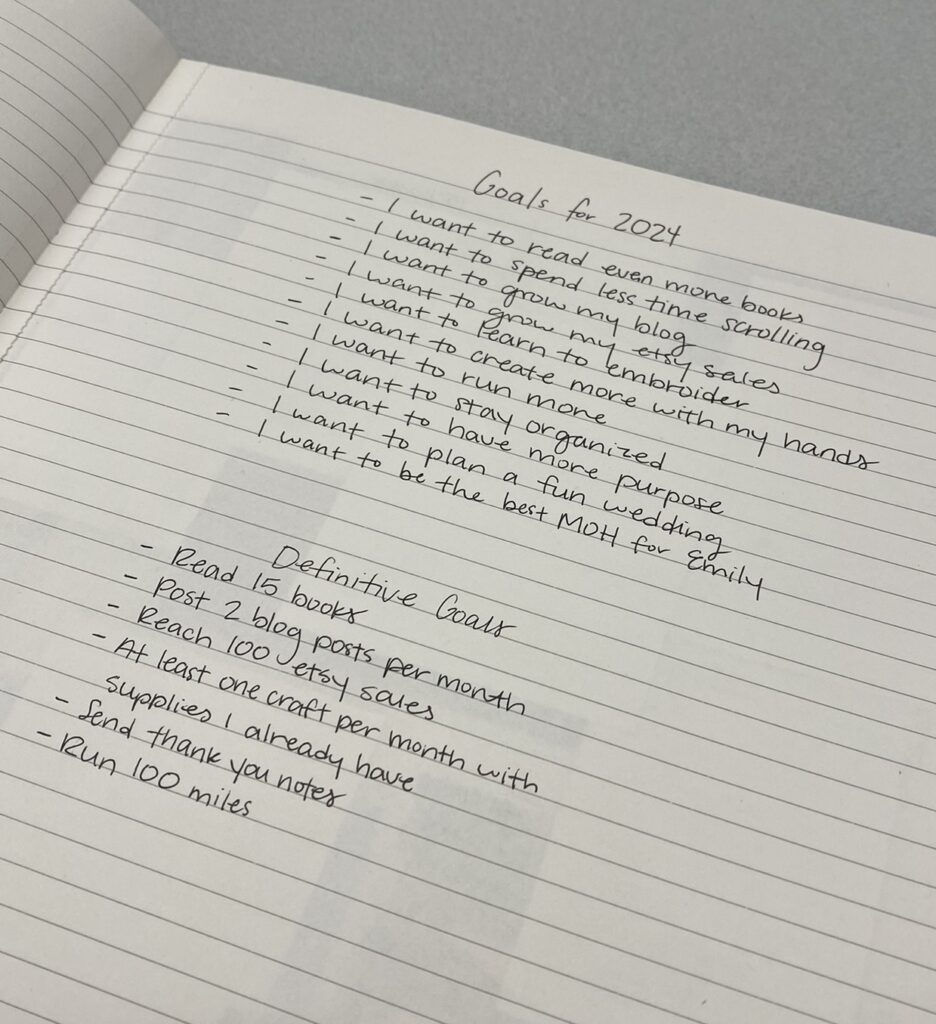 Goals for 2024
- I want to read even more books
- I want to spend less time scrolling
- I want to grow my blog
- I want to grow my etsy sales
- I want to learn to embroider
- I want to create more with my hands
- I want to run more
- I want to stay organized
- I want to have more purpose
- I want to plan a fun wedding
- I want to be the best MOH for Emily
Definitive Goals
- Read 15 books
- Post 2 blog posts per month
- Reach 100 etsy sales
- At least one craft per month with
supplies I already have
- Send thank you notes
- Run 100 miles